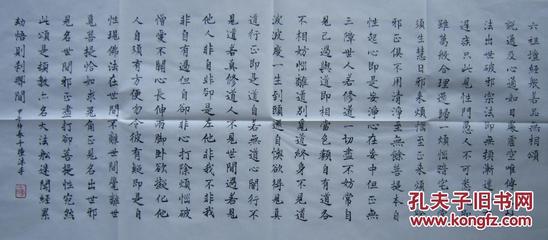 六祖壇經般若品無相頌
說通及心通如日處虛空唯傳見性
法出世破邪宗法即無頓漸迷悟有
遲疾只此見性門愚人不可悉說即
雖萬般合理還歸一煩惱暗宅中常
須生慧日邪來煩惱至正來煩惱除
邪正俱不用清淨至無餘菩提本自
性起心即是妄淨心在妄中但正無
三障世人若修道一切盡不妨常自
見己過與道即相當色類自有道各
不相妨惱離道別覓道終身不見道
波波度一生到頭還自懊欲得見真
道行正即是道自若無道心闇行不
見道若真修道人不見世間過若見
他人非自非卻是左他非我不非我
非自有過但自卻非心打除煩惱破
憎愛不關心長伸兩腳臥欲擬化他
人自須有方便勿令彼有疑即是自
性現佛法在世間不離世間覺離世
覓菩提恰如求兔角正見名出世邪
見名世間邪正盡打卻菩提性宛然
此頌是頓教亦名大法船迷聞經累
劫悟則剎那間
孔夫子旧书网
www.kongfz.com